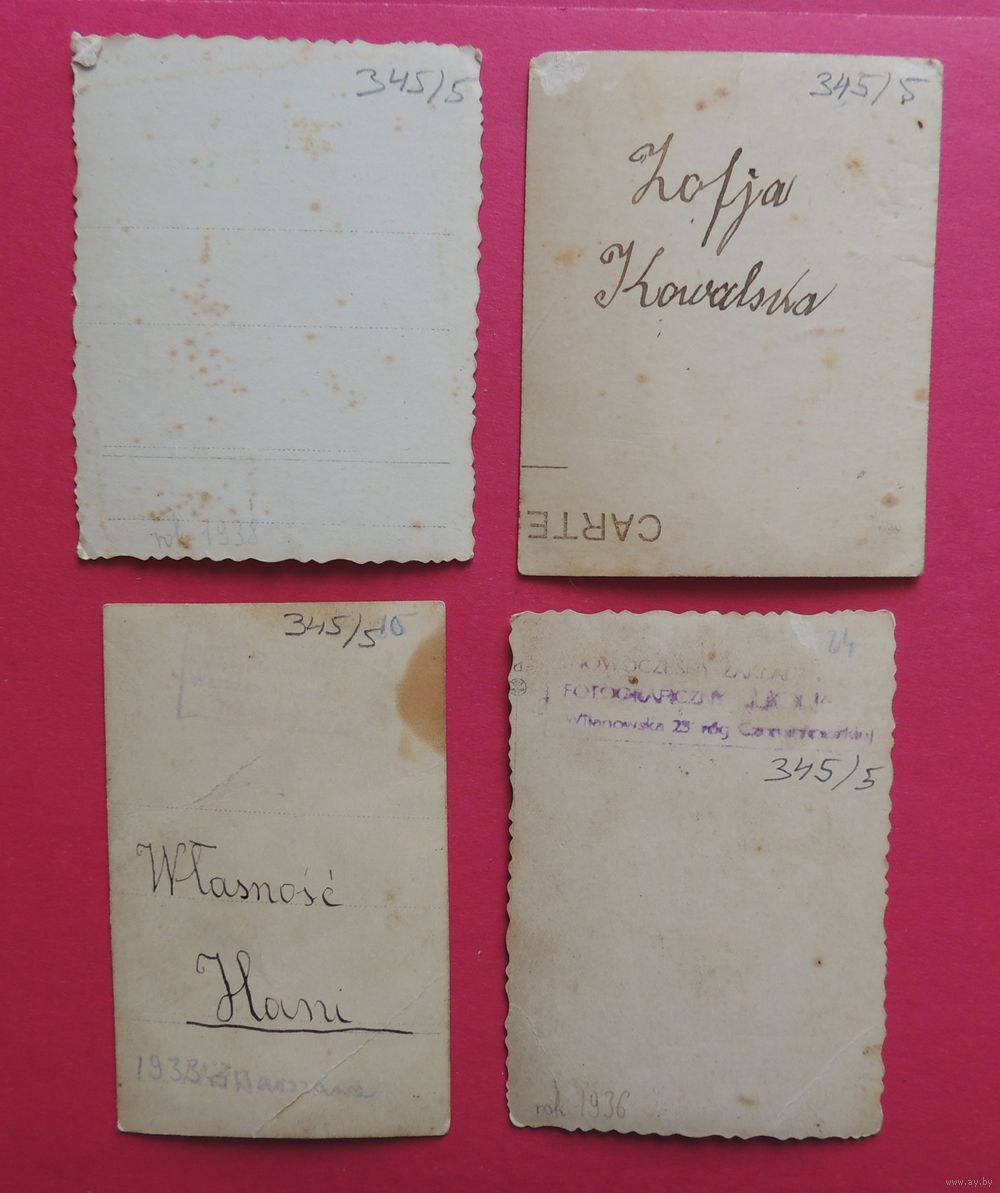 345/5
rok 1938
345/5
Zofja
Kowalska
CARTE
345/5
15
Własność
Hani
1933 r. Warszawa
24
NOWOCZESNY ZAKŁAD
FOTOGRAFICZNY
Wilanowska 25 róg Czerniakowskiej
345/5
rok 1936
www.ay.by